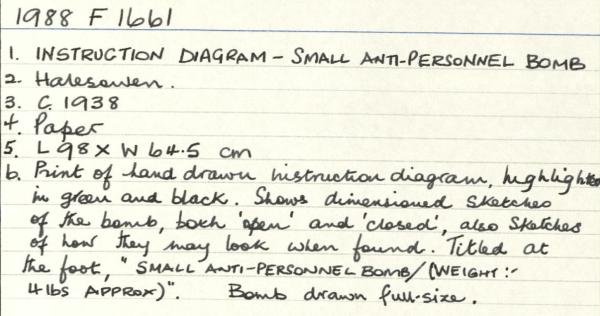 1988 F 1661
1. INSTRUCTION DIAGRAM - SMALL ANTI-PERSONNEL BOMB
2. Halesowen.
3. C. 1938
4. Paper
5. L 98 X W 64.5 cm
6. Print of hand drawn instruction diagram, highlighted
in green and black. Shows dimensioned sketches
of the bomb, both 'open' and 'closed', also sketches
of how they may look when found. Titled at
the foot, "SMALL ANTI-PERSONNEL BOMB/(WEIGHT:-
4lbs APPROX)". Bomb drawn full-size.